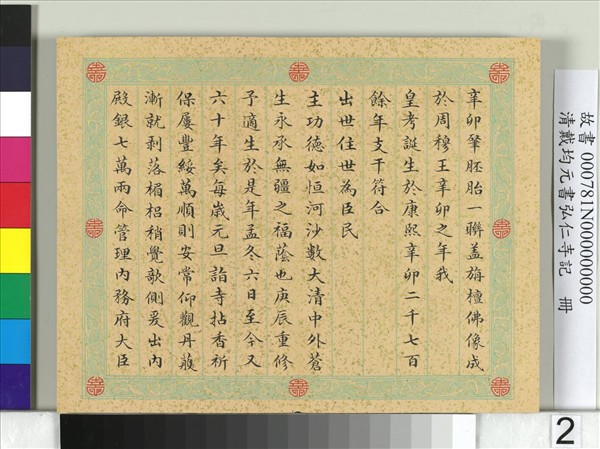 辛卯肇胚胎一聯蓋旃檀佛像成
於周穆王辛卯之年我
皇考誕生於康熙辛卯二千七百
餘年支干符合
出世住世為臣民
主功德如恒河沙數大清中外蒼
生永承無疆之福蔭也庚辰重修
予適生於是年孟冬六日至今又
六十年矣每歲元旦詣寺拈香祈
保屢豐綏萬順則安常仰觀丹雘
漸就剥落楣梠稍覺欹側爰出內
殿銀七萬兩命管理內務府大臣
故書 000781N000000000
清戴均元書弘仁寺記 冊
2